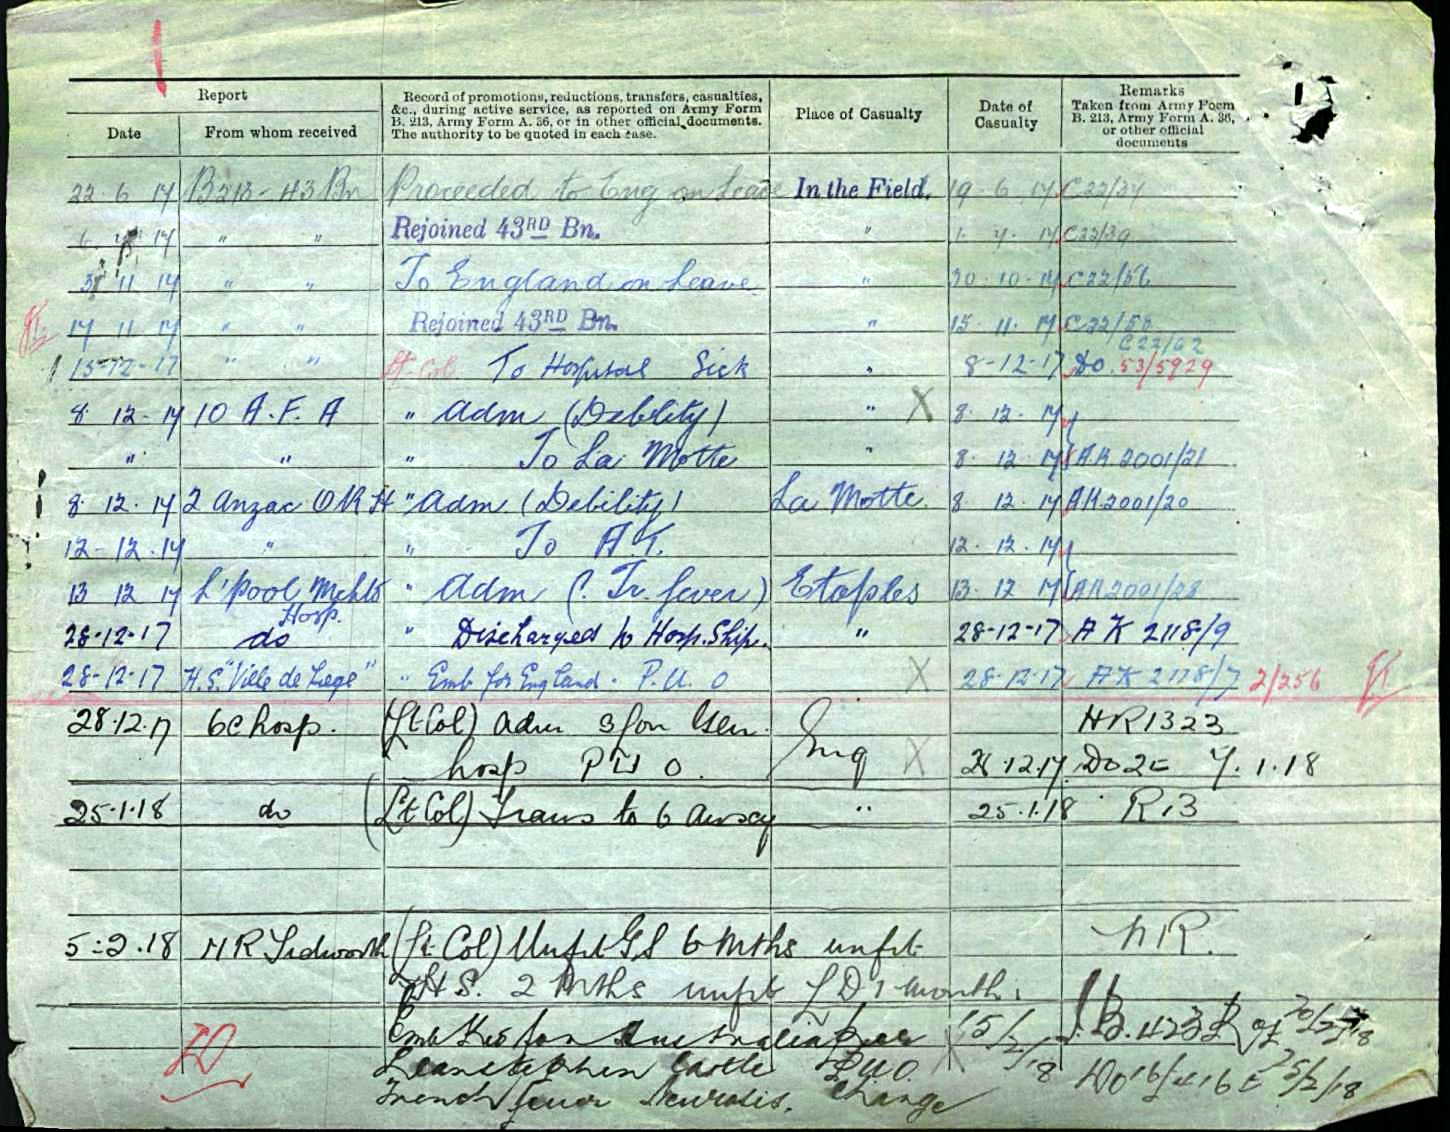 Report
Date
From whom received
Record of promotions, reductions, transfers, casualties,
&c., during active service, as reported on Army Form
B. 213, Army Form A. 36, or in other official documents.
The authority to be quoted in each case.
Place of Casualty
Date of
Casualty
Remarks
Taken from Army Form
B. 213, Army Form A. 36,
or other official
documents
22 . 6 17 B213 - 43 Bn Proceeded to Eng on Leave In the Field. 19 . 6 . 17 C22/34
6 17 " " Rejoined 43RD Bn. " 1 . 7 . 17 C22/39
3 11 17 " " To England on Leave " 30 . 10 . 17 C22/56
17 11 17 " " Rejoined 43RD Bn. " 15 . 11 . 17 C22/58
C22/62
15-12-17 " " Lt. Col To Hospital Sick " 8-12-17 Do 53/5929
8 12 . 17 10 A.F.A " Adm (Debility) " X 8 . 12 . 17
" " " To La Motte " 8 . 12 . 17 AK 2001/21
8 . 12 . 17 2 Anzac ORSH " Adm (Debility) La Motte 8 . 12 . 17 AK 2001/20
12 - 12 . 17 " " To A.T. 12 . 12 . 17
13 12 17 L'pool Mchts " Adm (?. Tr. fever) Etaples 13 . 12 17 AK 2001/28
Hosp.
28-12-17 do " Discharged to Hosp. Ship. " 28-12-17 AK 2118/9
28-12-17 H.S. "Ville de Liege" " Emb for England . P.U.O X 28-12-17 AK 2118/7 2/256
28.12.17 6C hosp. (Lt Col) adm 3 Lon Gen HR1323
hosp P U O. Eng X 28.12.17 Do 25 7.1.18
25.1.18 do (Lt Col) Trans to 6 " 25.1.18 R13
5-2.18 HR Tidworth (Lt Col) Unfit GS 6 Mths unfit HR.
H S. 2 Mths unfit L D 1 month.
Emb for Australia per 15/2/18 B.423 of 20/2/18
Llanstephen Castle P.U.O. X Do 16/416 25/2/18
Trench fever Neurosis. change